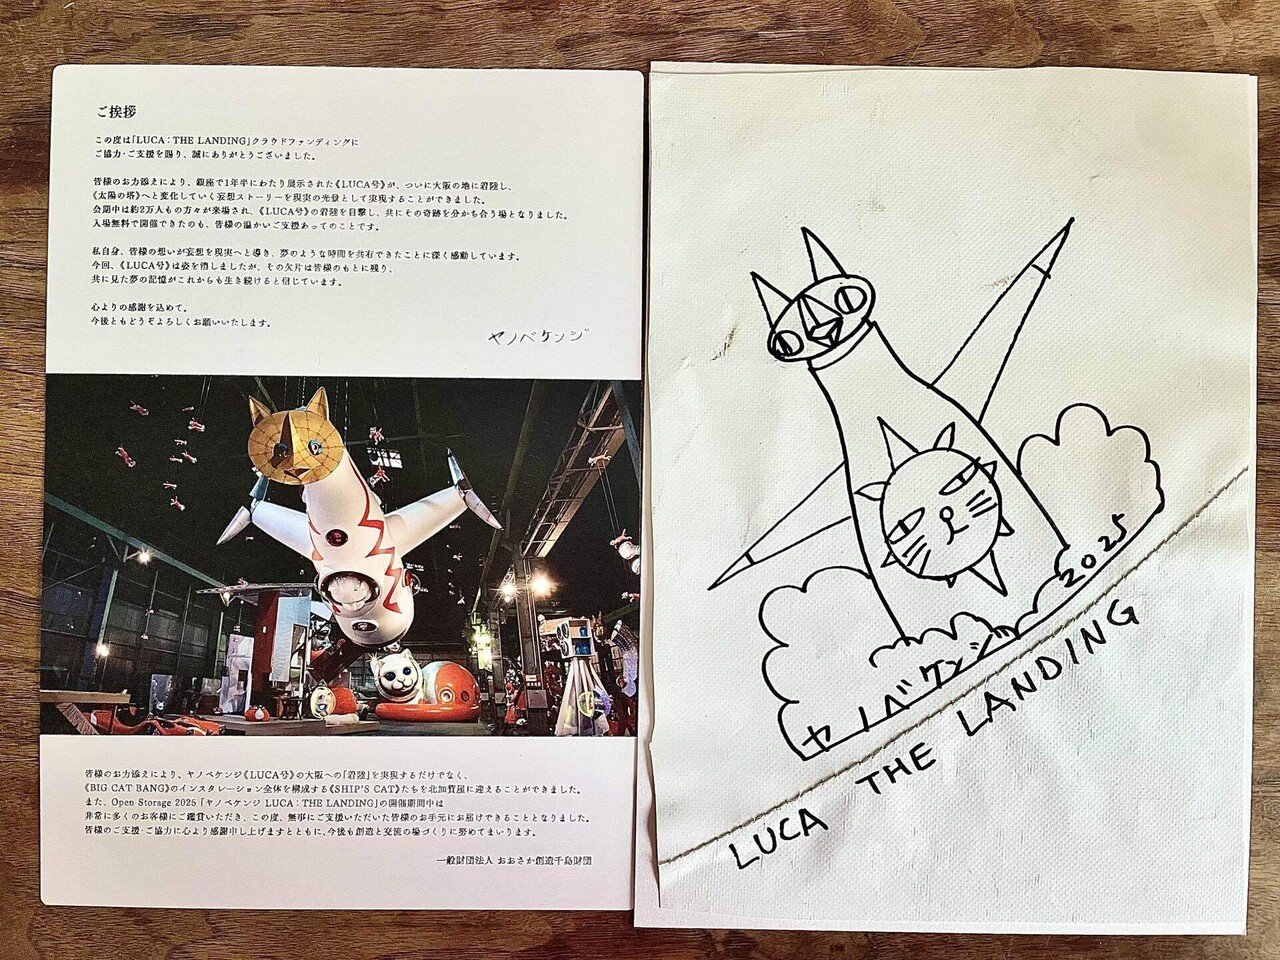 ご挨拶
この度は「LUCA：THE LANDING」クラウドファンディングに
ご協力・ご支援を賜り、誠にありがとうございました。
皆様のお力添えにより、銀座で1年半にわたり展示された《LUCA号》が、ついに大阪の地に着陸し、
《太陽の塔》へと変化していく妄想ストーリーを現実の光景として実現することができました。
会期中は約2万人もの方々が来場され、《LUCA号》の着陸を目撃し、共にその奇跡を分かち合う場となりました。
入場無料で開催できたのも、皆様の温かいご支援あってのことです。
私自身、皆様の想いが妄想を現実へと導き、夢のような時間を共有できたことに深く感動しています。
今回、《LUCA号》は姿を消しましたが、その欠片は皆様のもとに残り、
共に見た夢の記憶がこれからも生き続けると信じています。
心よりの感謝を込めて。
今後ともどうぞよろしくお願いいたします。
ヤノベケンジ
皆様のお力添えにより、ヤノベケンジ《LUCA号》の大阪への「着陸」を実現するだけでなく、
《BIG CAT BANG》のインスタレーション全体を構成する《SHIP'S CAT》たちを北加賀屋に迎えることができました。
また、Open Storage 2025「ヤノベケンジ LUCA：THE LANDING」の開催期間中は
非常に多くのお客様にご鑑賞いただき、この度、無事にご支援いただいた皆様のお手元にお届けできることとなりました。
皆様のご支援・ご協力に心より感謝申し上げますとともに、今後も創造と交流の場づくりに努めてまいります。
一般財団法人 おおさか創造千島財団
ヤノベケンジ 2025
LUCA THE LANDING